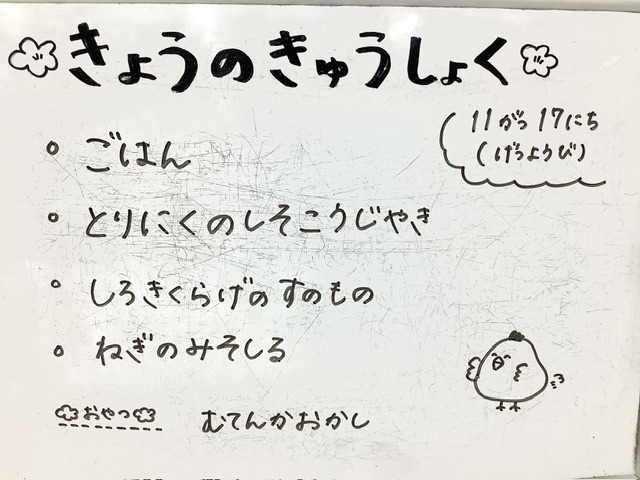 きょうのきゅうしょく
11がつ17にち
(げつようび)
ごはん
とりにくのしそこうじやき
しろきくらげのすのもの
ねぎのみそしる
おやつ むてんかおかし